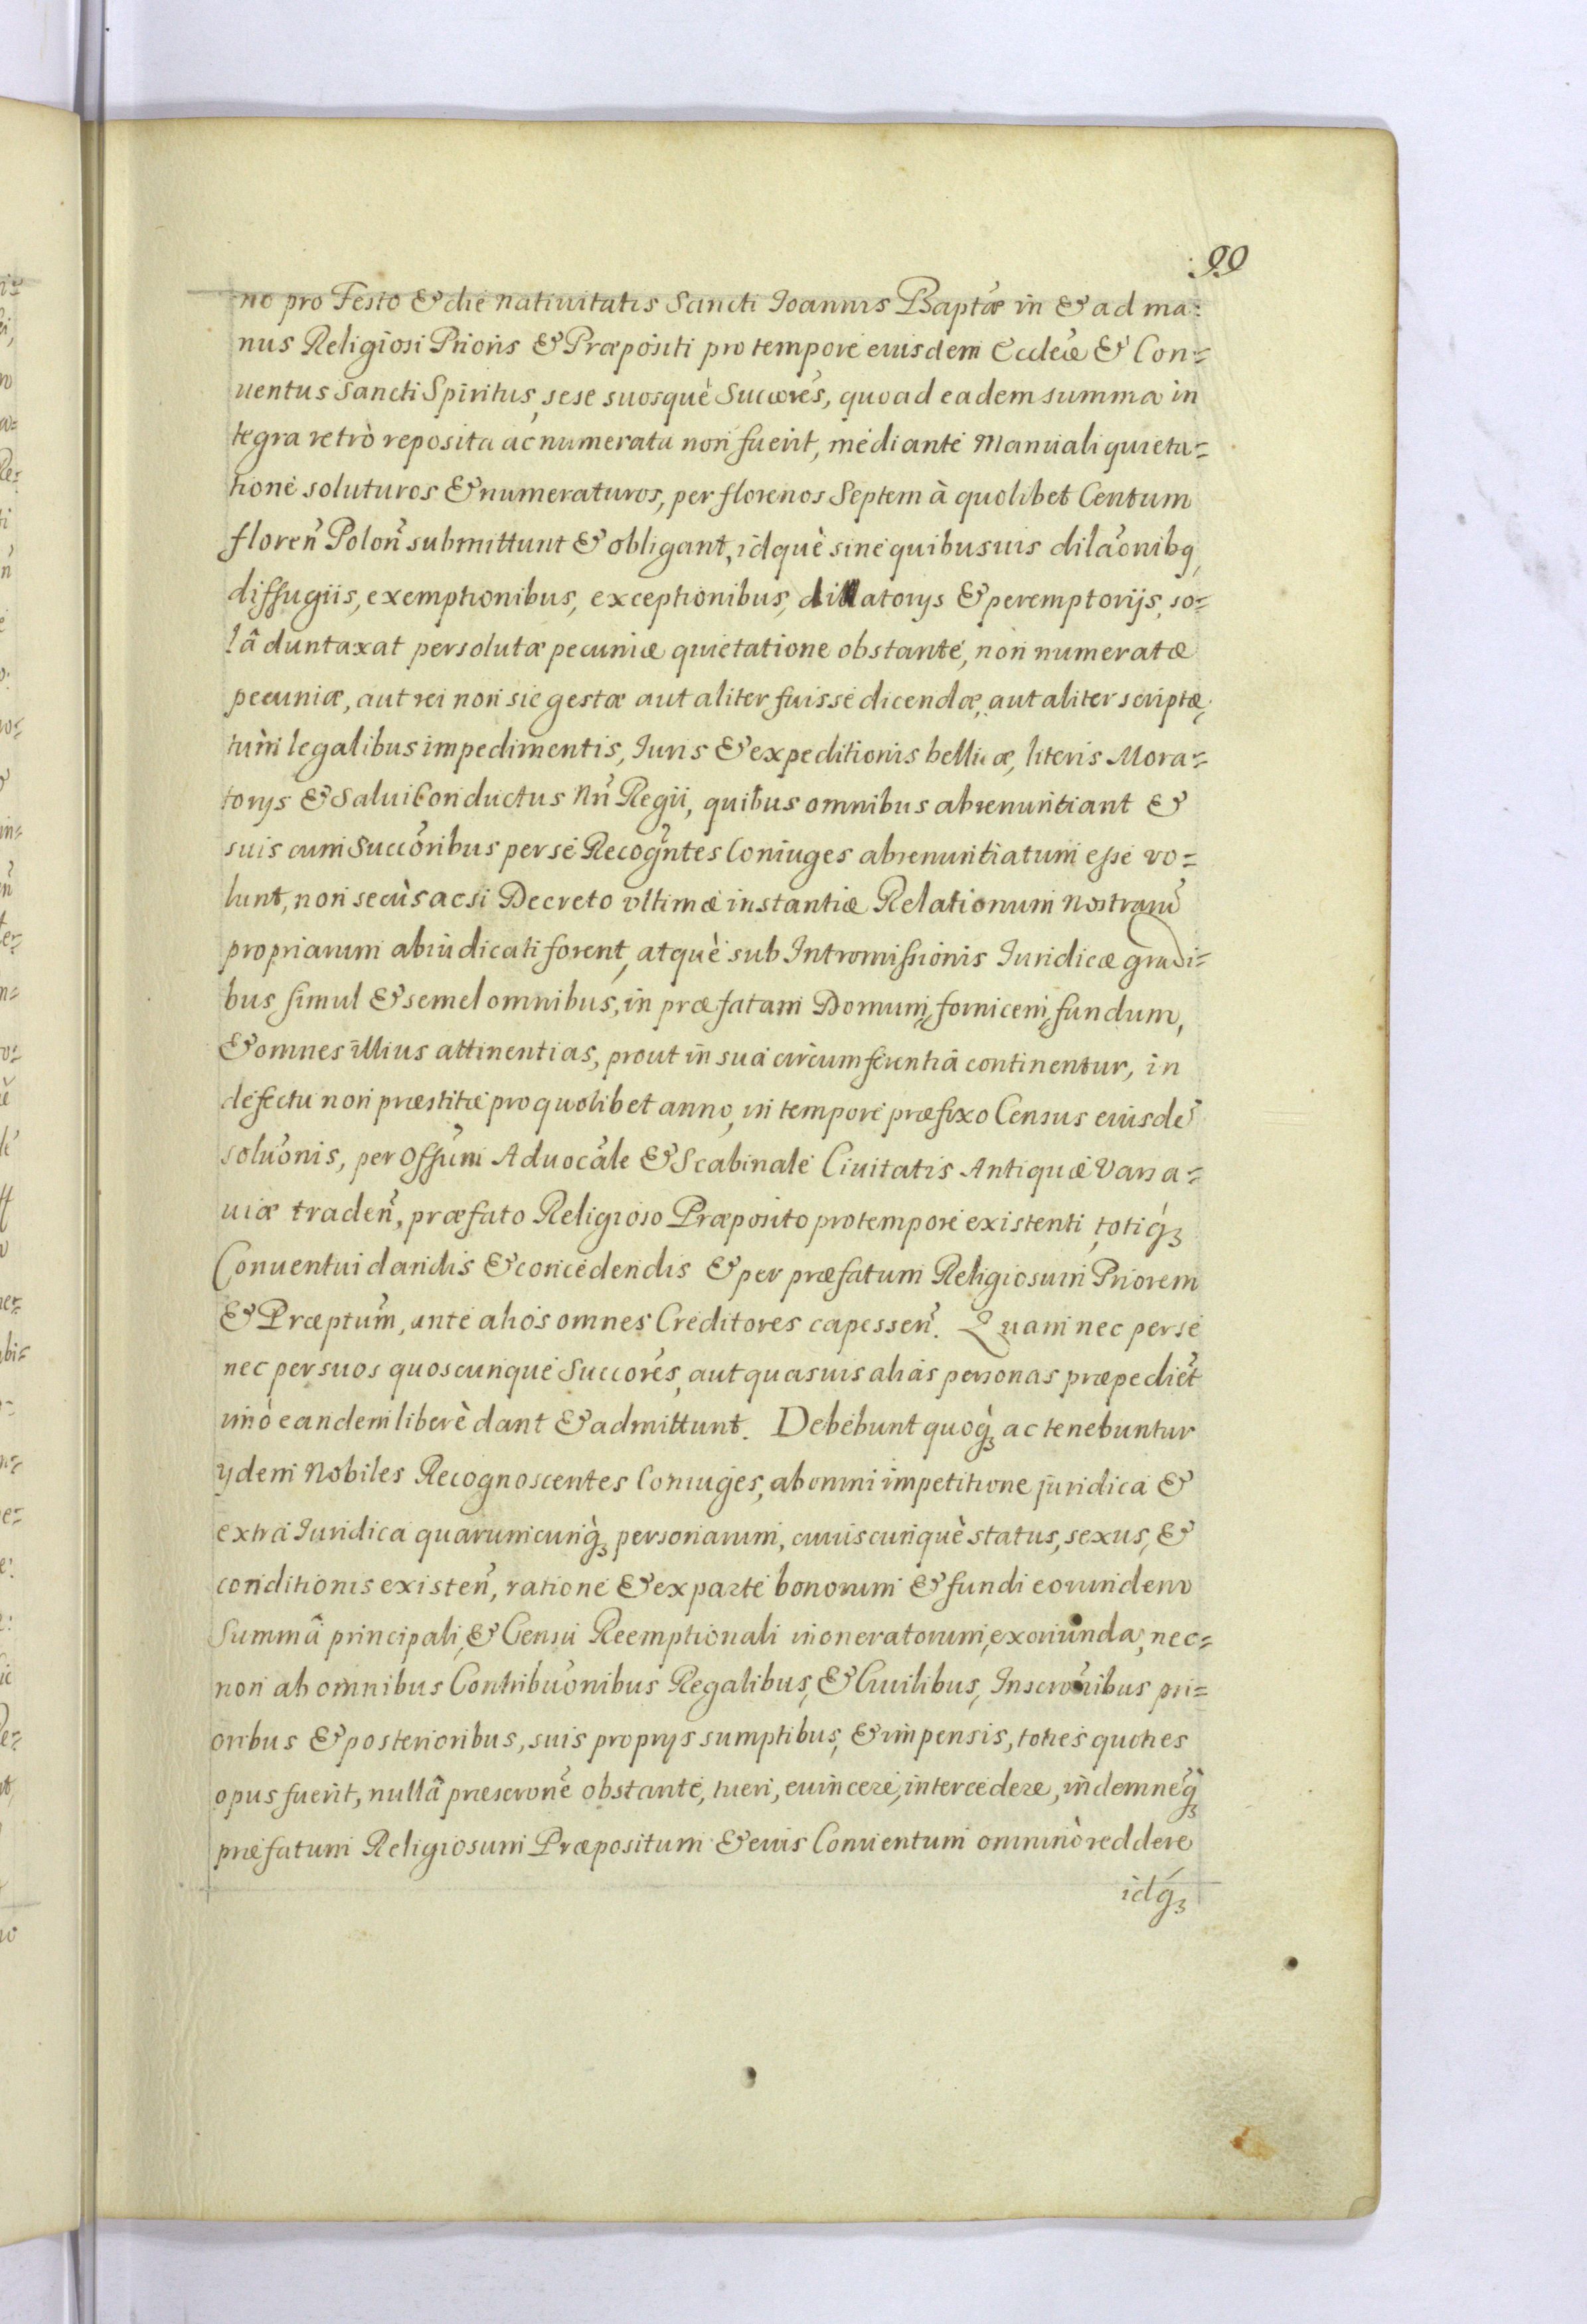 99
no pro Festo & die nativitatis Sancti Joannis Baptæ in & ad ma-
nus Religiosi Prioris & Præpositi pro tempore eiusdem Eccleiæ & Con-
uentus Sancti Spiritus, sese suosquè Succores, quoad eadem summa in
tegra retrò reposita ac numerata non fuerit, mediante Manuali quieta-
tione soluturos & numeraturos, per florenos Septem à quolibet Centum
floreñ Poloñ submittunt & obligant, idquè sine quibusuis dilaõnibq,
diffugiis, exemptionibus, exceptionibus, dillatorys & peremptorijs, so-
lâ duntaxat persolutæ pecuniæ quietatione obstante, non numeratæ
pecuniæ, aut rei non sic gestæ aut aliter fuisse dicendæ, aut aliter scriptæ,
tùm legalibus impedimentis, Iuris & expeditionis bellicæ, literis Mora-
torys & Salui Conductus Nrĩ Regii, quibus omnibus abrenuntiant &
suis cum Succoribus per se Recogntes Coniuges abrenuntiatum esse vo-
lunt, non secùs ac si Decreto vltimæ instantiæ Relationum Nostraru
propriarum abiudicati forent, atquè sub Intromissionis Iuridicæ gradi-
bus simul & semel omnibus, in præfatam Domum, fornicem, fundum,
& omnes illius attinentias, prout in sua circumferentia continentur, in
defectu non præstitæ pro quolibet anno, in tempore præfixo Census eiusde
soluõnis, per Offum Aduocãle & Scabinale Ciuitatis Antiquæ Varsa-
uiæ tradeñ, præfato Religioso Præposito pro tempore existenti, totiq́ꝫ
Conuentui dandis & concedendis & per præfatum Religiosum Priorem
& Præptum, ante alios omnes Creditores capesseñ. Quam nec per se
nec per suos quoscunque Succores, aut quasuis alias personas præpediet
imò eandem liberè dant & admittunt. Debebunt quoq̀ꝫ ac tenebuntur
ydem Nobiles Recognoscentes Coniuges, ab omni impetitione juridica &
extra Iuridica quarumcunq̀ꝫ personarum, cuiuscunquè status, sexus, &
conditionis existeñ, ratione & ex parte bonorum & fundi eorundem
Summâ principali, & Censu Reemptionali inoneratorum, exoriunda, nec-
non ab omnibus Contribuõnibus Regalibus, & Ciuilibus, Inscrõnibus pri-
oribus & posterioribus, suis proprys sumptibus, & impensis, toties quoties
opus fuerit, nullâ præscrone obstante, tueri, euincere, intercedere, indemneq̀ꝫ
præfatum Religiosum Præpositum & eius Conuentum omninò reddere
idq́ꝫ